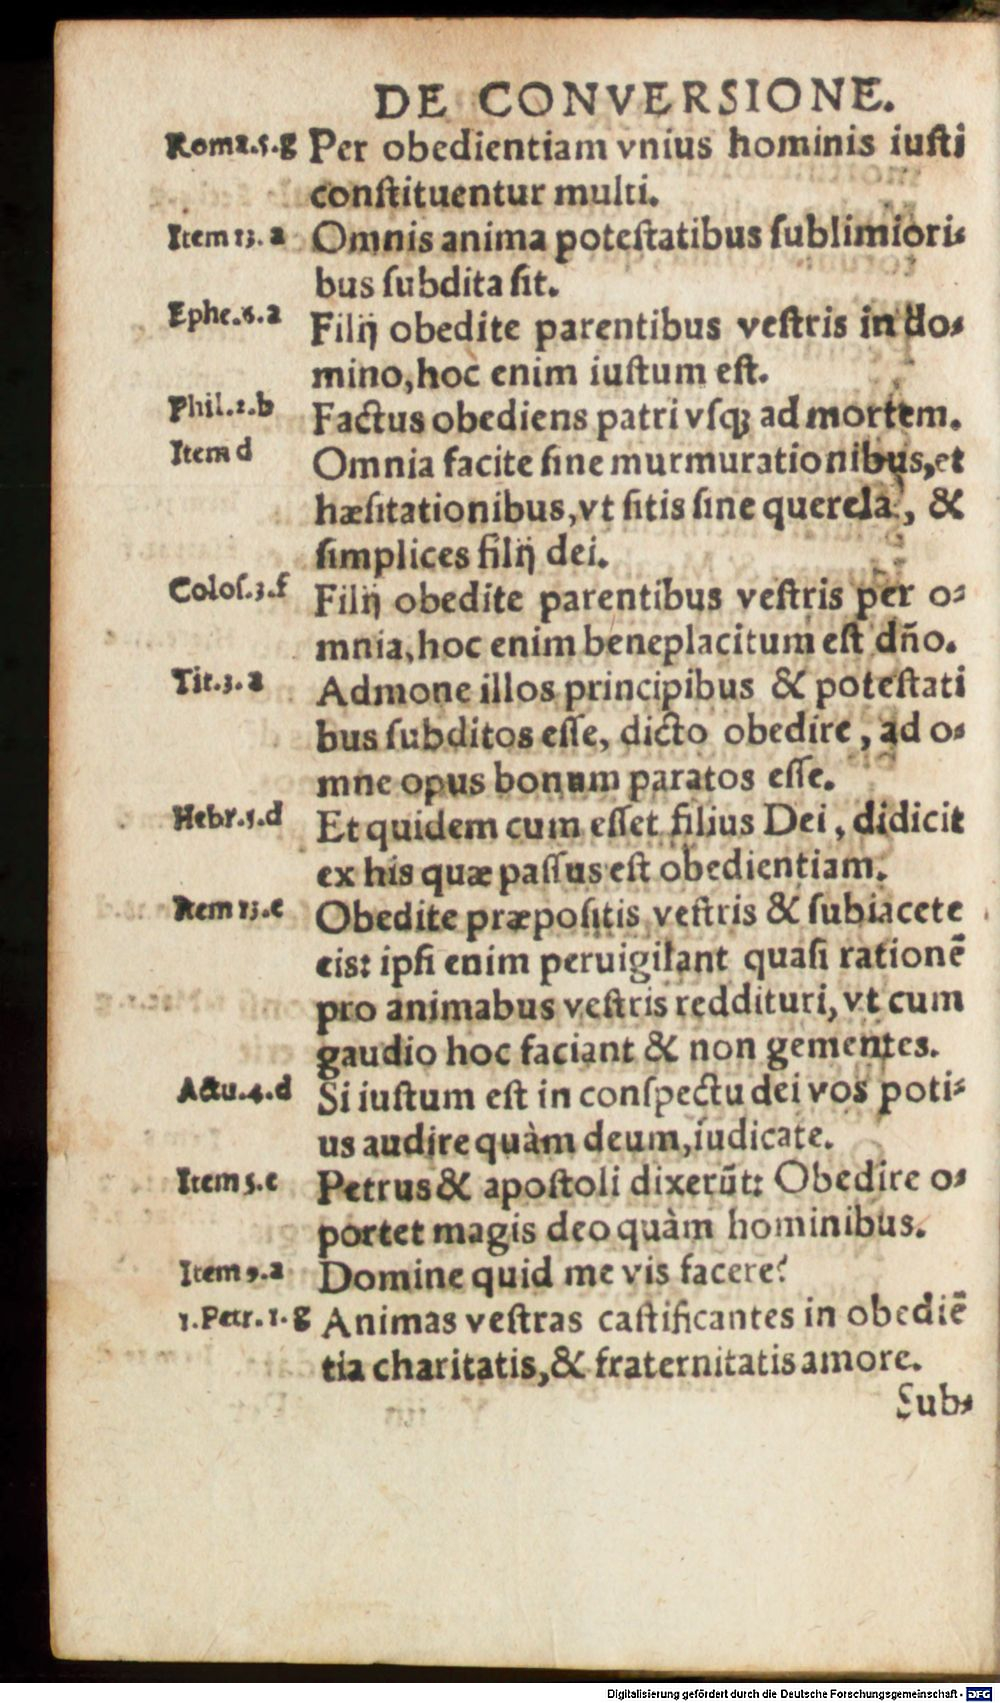 DE CONVERSIONE.
Roma.5.g Per obedientiam vnius hominis iuſti
conſtituentur multi.
Item 13. a Omnis anima poteſtatibus ſublimiori-
bus ſubdita ſit.
Ephe.6.a Filij obedite parentibus veſtris in do-
mino, hoc enim iuſtum eſt.
Phil.2.b Factus obediens patri vſqꝫ ad mortem.
Item d Omnia facite ſine murmurationibus, et
hæſitationibus, vt ſitis ſine querela, &
ſimplices filij dei.
Coloſ.3.f Filij obedite parentibus veſtris per o-
mnia, hoc enim beneplacitum eſt dño.
Tit.3.a Admone illos principibus & poteſtati
bus ſubditos eſſe, dicto obedire, ad o-
mne opus bonum paratos eſſe.
Hebr.5.d Et quidem cum eſſet filius Dei, didicit
ex his quæ paſſus eſt obedientiam.
Item 13.c Obedite præpoſitis veſtris & ſubiacete
eis: ipſi enim peruigilant quaſi rationē
pro animabus veſtris reddituri, vt cum
gaudio hoc faciant & non gementes.
Actu.4.d Si iuſtum eſt in conſpectu dei vos poti-
us audire quàm deum, iudicate.
Item 5.e Petrus & apoſtoli dixerūt: Obedire o-
portet magis deo quàm hominibus.
Item 9.a Domine quid me vis facere?
1.Petr.1.g Animas veſtras caſtificantes in obediē
tia charitatis, & fraternitatis amore.
Sub-
Digitalisierung gefördert durch die Deutsche Forschungsgemeinschaft - DFG